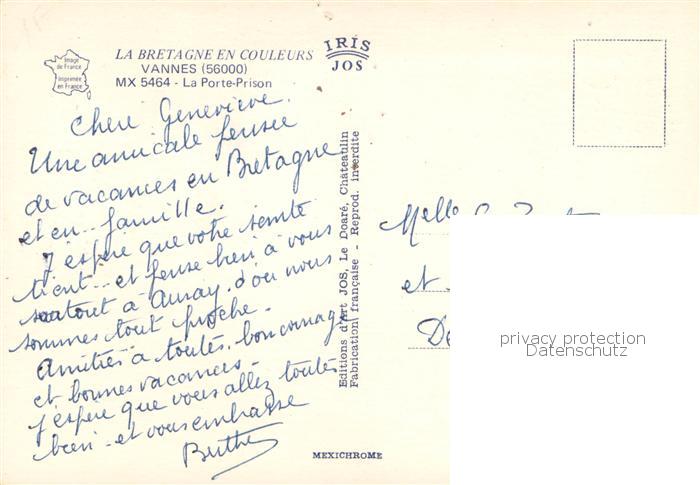 Image
de France
Imprimée
en France
LA BRETAGNE EN COULEURS
VANNES (56000)
MX 5464 - La Porte-Prison
IRIS
JOS
Chere Geneviève.
Une amicale pensée
de vacances en Bretagne
et en.. famille.
J'espère que votre santé
tient... et pense bien à vous
surtout à Auray, d'où nous
sommes tout proche.
Amitiés à toutes, bon courage
et bonnes vacances.
J'espère que vous allez toutes
bien - et vous embrasse
Berthe
Editions d'Art JOS, Le Doaré, Châteaulin
Fabrication française - Reprod. interdite
Melle
et
De
privacy protection
Datenschutz
MEXICHROME